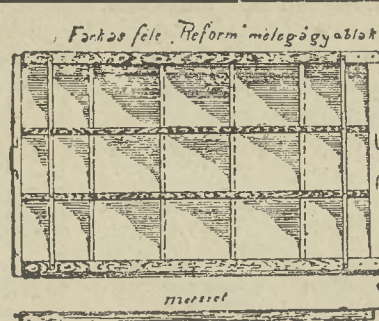 Farkas féle „Reform" melegágyablak
metszet